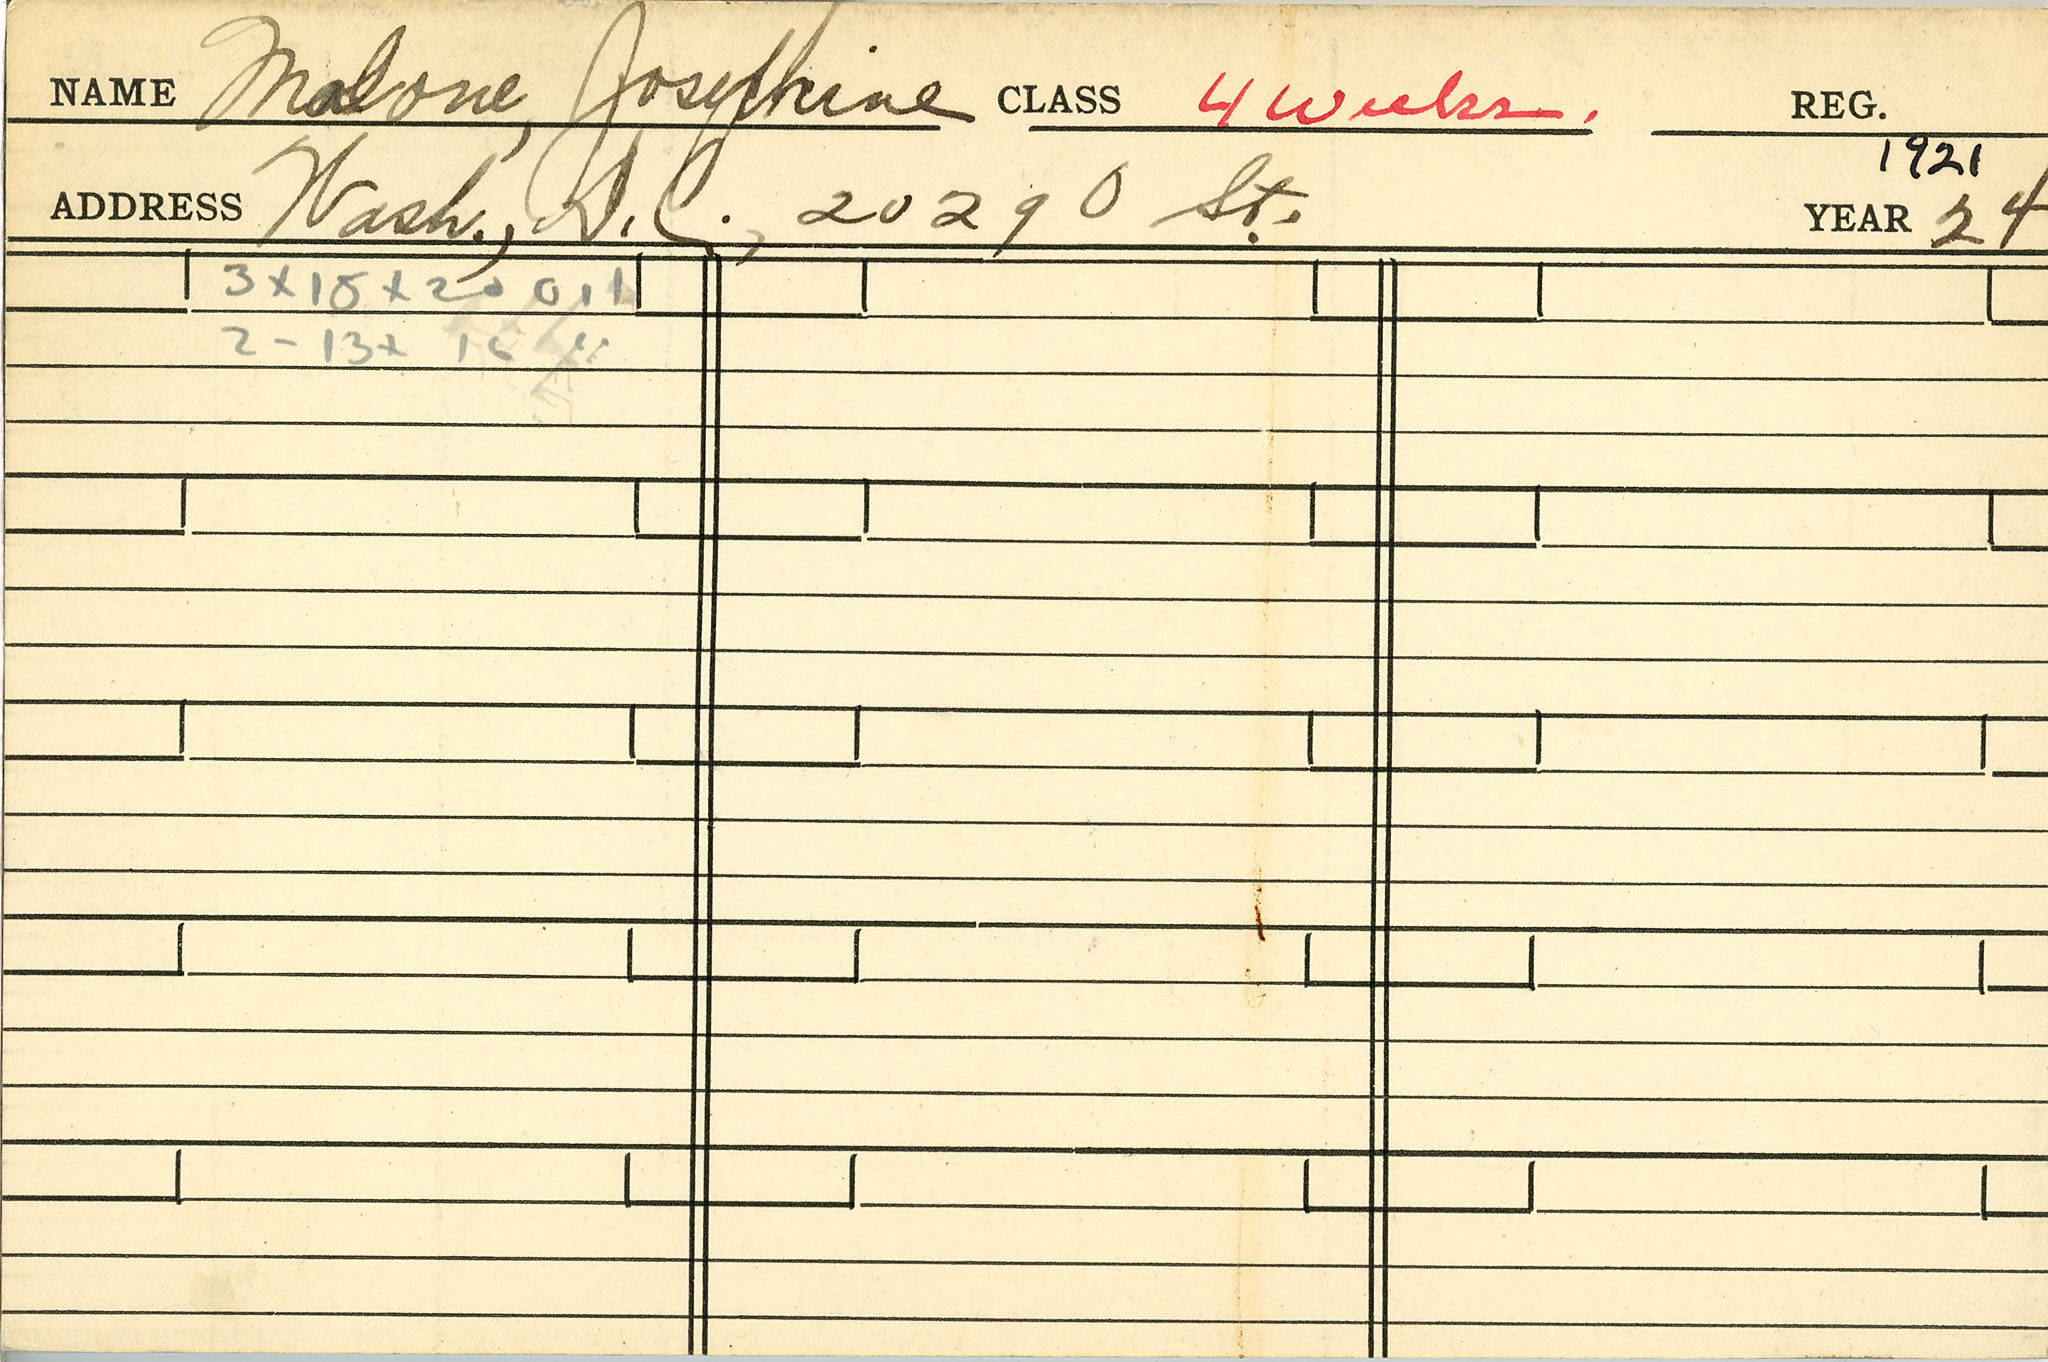 NAME Malone, Josephine CLASS 4 Weeks. REG.
1921
ADDRESS Wash., D.C., 2029 O St. YEAR 24
3x18x20 011
2-13x 16